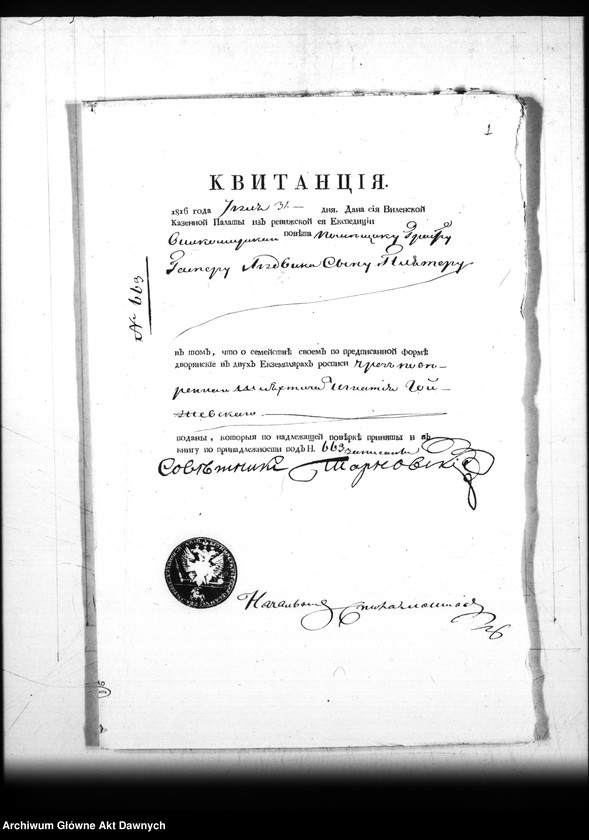 1
КВИТАНЦІЯ.
1816 года Іюля 31 — дня. Дана сія Виленской
Казенной Палаты изъ ревижской ея Експедиціи
повѣта помѣщику Графу
Касперу Людвика Сыну Плятеру
№ 663
въ томъ, что о семействѣ своемъ по предписанной формѣ
дворянскіе въ двухъ Екземплярахъ росписи чрезъ пове-
реннаго шляхтича Игнатія Гой-
жевскаго
поданы, которыя по надлежащей повѣркѣ приняты и въ
книгу по принадлежности подъ Н. 663 записаны
Совѣтникъ Тарновскій
Начальникъ
Archiwum Główne Akt Dawnych